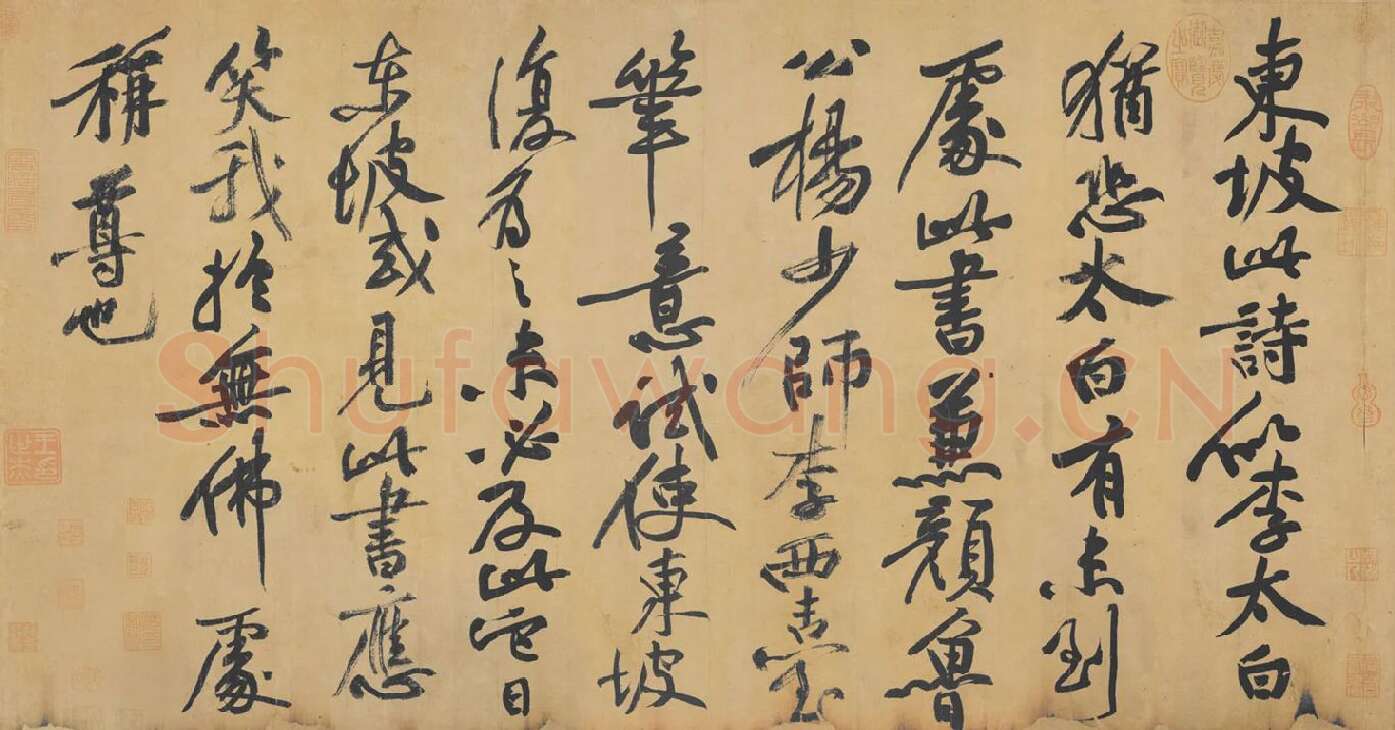 東坡此詩似李太白
猶恐太白有未到
處此書兼顏魯
公楊少師李西臺
筆意試使東坡
復為之未必及此它日
東坡或見此書應
笑我於無佛處
稱尊也
Shufawang.CN